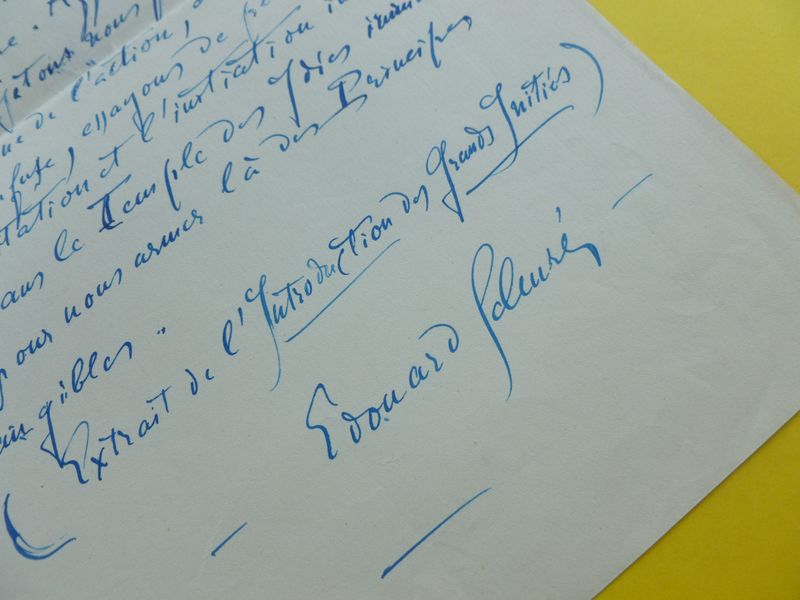 jetons nous
de l'action, 
essayons de
tation et l'initiation
dans le Temple des Idées
pour nous armer là des Principes
gibles"
(Extrait de l'Introduction des Grands Initiés)
Edouard Schuré